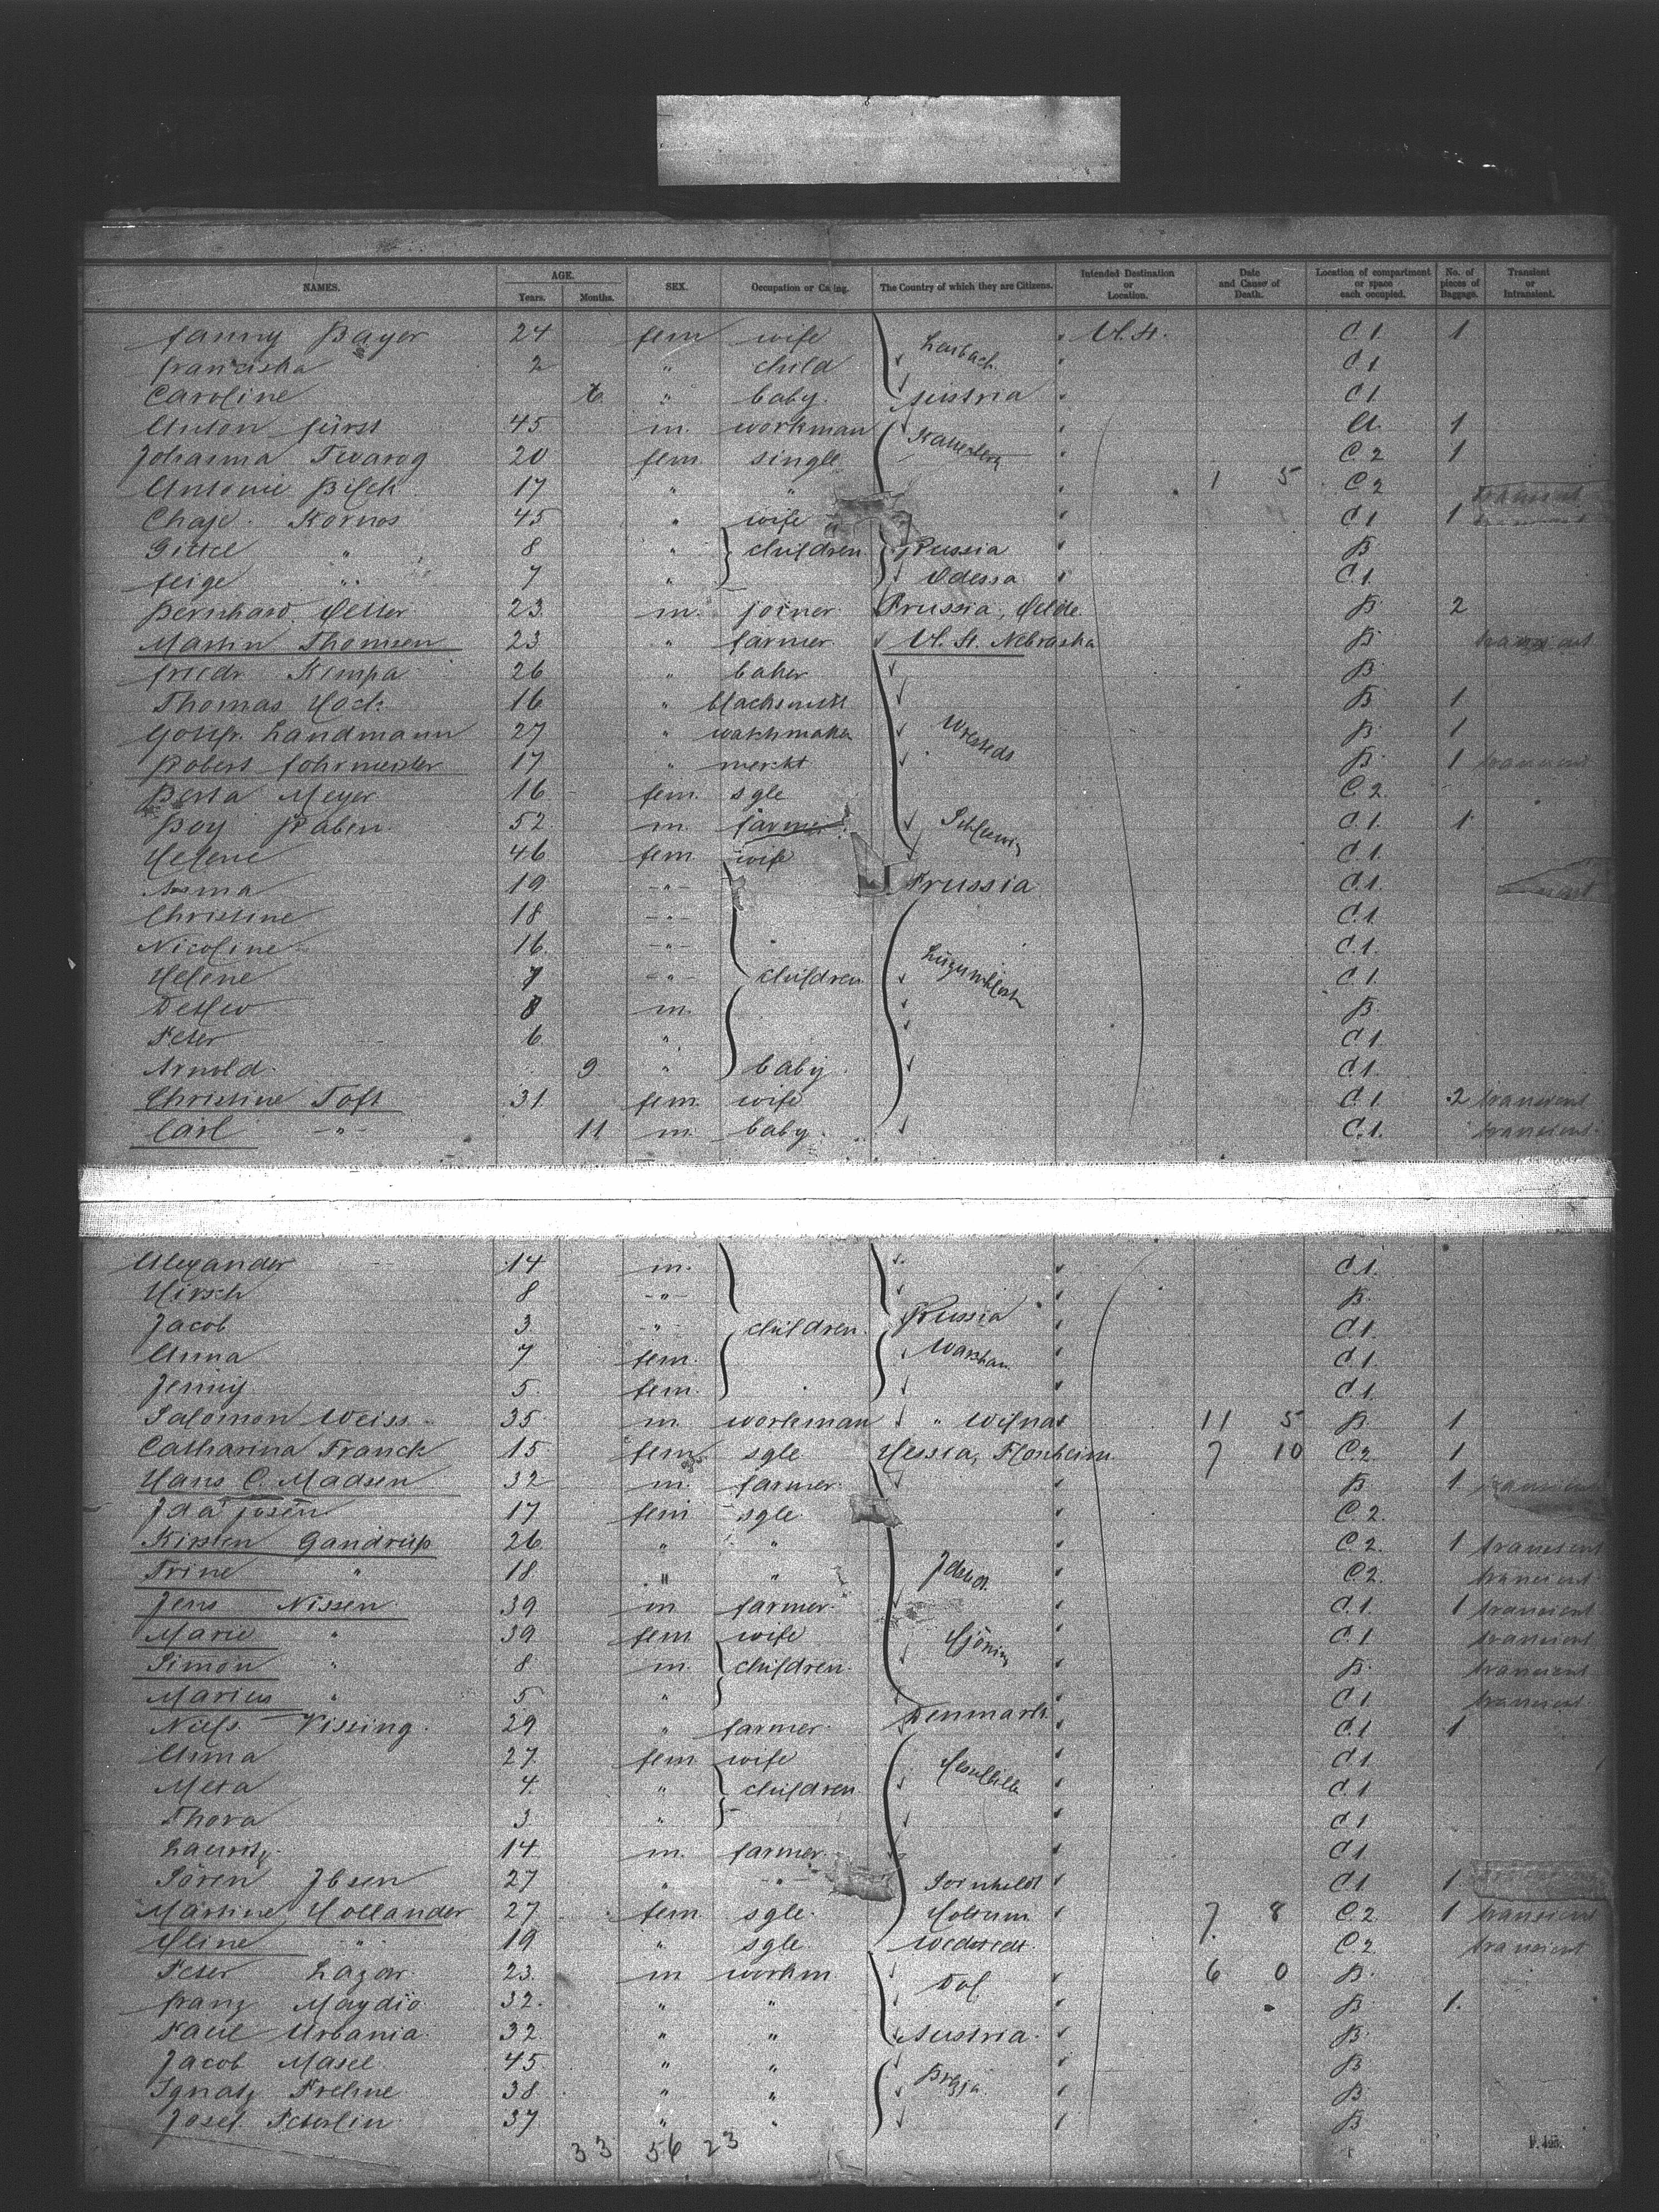 NAMES. AGE. Years. Months. SEX. Occupation or Calling. The Country of which they are Citizens. Intended Destination or Location. Date and Cause of Death. Location of compartment or space each occupied. No. of pieces of Baggage. Transient or Intransient.
Fanny Bayer 24 fem wife Laibach U. St. C.1 1
Franciska 2 " child C.1
Caroline 6 " baby Austria C.1
Anton Fürst 45 m. workman A. 1
Johanna Twarog 20 fem. single C.2 1
Antonie Bilek 17 " " 1 5 C.2
Chaje Kornos 45 " wife C.1 1
Gittel " 8 " children Russia B.
Feige " 7 " Odessa C.1.
Bernhard Oelter 23 m. joiner Prussia, Oelde. B. 2
Martin Thomsen 23 " farmer U. St. Nebraska B. transient
Friedr Kempa 26 " baker B.
Thomas Hock 16 " blacksmith B. 1
Gottfr. Landmann 27 " watchmaker B. 1
Robert Fohrmeister 17 " mercht B. 1 transient
Berta Meyer 16 fem. sgle C.2.
Boy Raben 52 m. farmer C.1. 1
Helene 46 fem wife C.1.
Anna 19 " Prussia C.1.
Christine 18 " C.1.
Nicoline 16 " C.1.
Helene 7 " children C.1.
Detlev 8 m. B.
Peter 6 " C.1.
Arnold 9 " baby C.1.
Christine Toft 31 fem. wife C.1. 2 transient
Carl " 11 m. baby C.1. transient
Alexander 14 m. C.1.
Hirsch 8 " B.
Jacob 3 " children Russia C.1.
Anna 7 fem. Warshau C.1.
Jenny 5 fem. C.1.
Salomon Weiss 35 m. workman " Wilna 11 5 B. 1
Catharina Franck 15 fem sgle Hessia, Flonheim 7 10 C.2 1
Hans C. Madsen 32 m. farmer B. 1 transient
Ida 17 fem sgle C.2.
Kirsten Gandrup 26 " " C.2. 1 transient
Trine " 18 " " C2. transient
Jens Nissen 39 m farmer C.1 1 transient
Marie " 39 fem wife Hjöring C.1 transient
Simon " 8 m. children B. transient
Marius " 5 " C.1 transient
Niels Vissing 29 " farmer Denmark C.1 1
Anna 27 fem wife C.1
Meta 4 " children C.1
Thora 3 " C.1
Lauritz 14 m. farmer C.1
Sören Ibsen 27 " " C.1 1
Martine Hollander 27 fem. sgle. 7 8 C.2 1 transient
Eline " 19 " sgle. Wedstedt. C.2 transient
Peter Lazar 23 m workm Dol 6 0 B.
Franz Maydic 32 " " B. 1.
Paul Urbania 32 " " Austria B.
Jacob Masel 45 " " B
Ignatz Preline 38 " " B.
Josef Peterlin 37 " " B
33 56 23